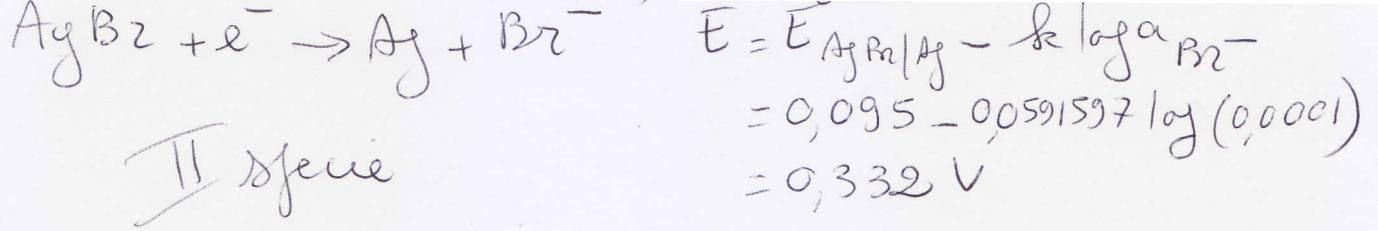 AgBr + e⁻ → Ag + Br⁻
E = E AgBr/Ag - k log a Br⁻
= 0,095 - 0,0591597 log (0,0001)
II specie
= 0,332 V